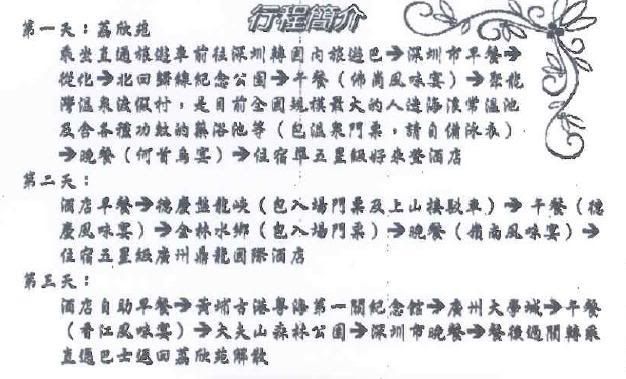 行程簡介
第一天：荔欣苑
乘坐直通旅遊車前往深圳轉國內旅遊巴➔深圳市早餐➔
從化➔北回歸線紀念公園➔午餐（佛崗風味宴）➔聚龍
灣溫泉渡假村，是目前全國規模最大的人造海浪常溫池
及含各種功效的藥浴池等（包溫泉門票，請自備泳衣）
➔晚餐（何首烏宴）➔住宿準五星級好來登酒店
第二天：
酒店早餐➔德慶盤龍峽（包入場門票及上山接駁車）➔午餐（德
慶風味宴）➔金林水鄉（包入場門票）➔晚餐（嶺南風味宴）➔
住宿五星級廣州鼎龍國際酒店
第三天：
酒店自助早餐➔黃埔古港粵海第一關紀念館➔廣州大學城➔午餐
（香江風味宴）➔大夫山森林公園➔深圳市晚餐➔餐後過關轉乘
直通巴士返回荔欣苑解散